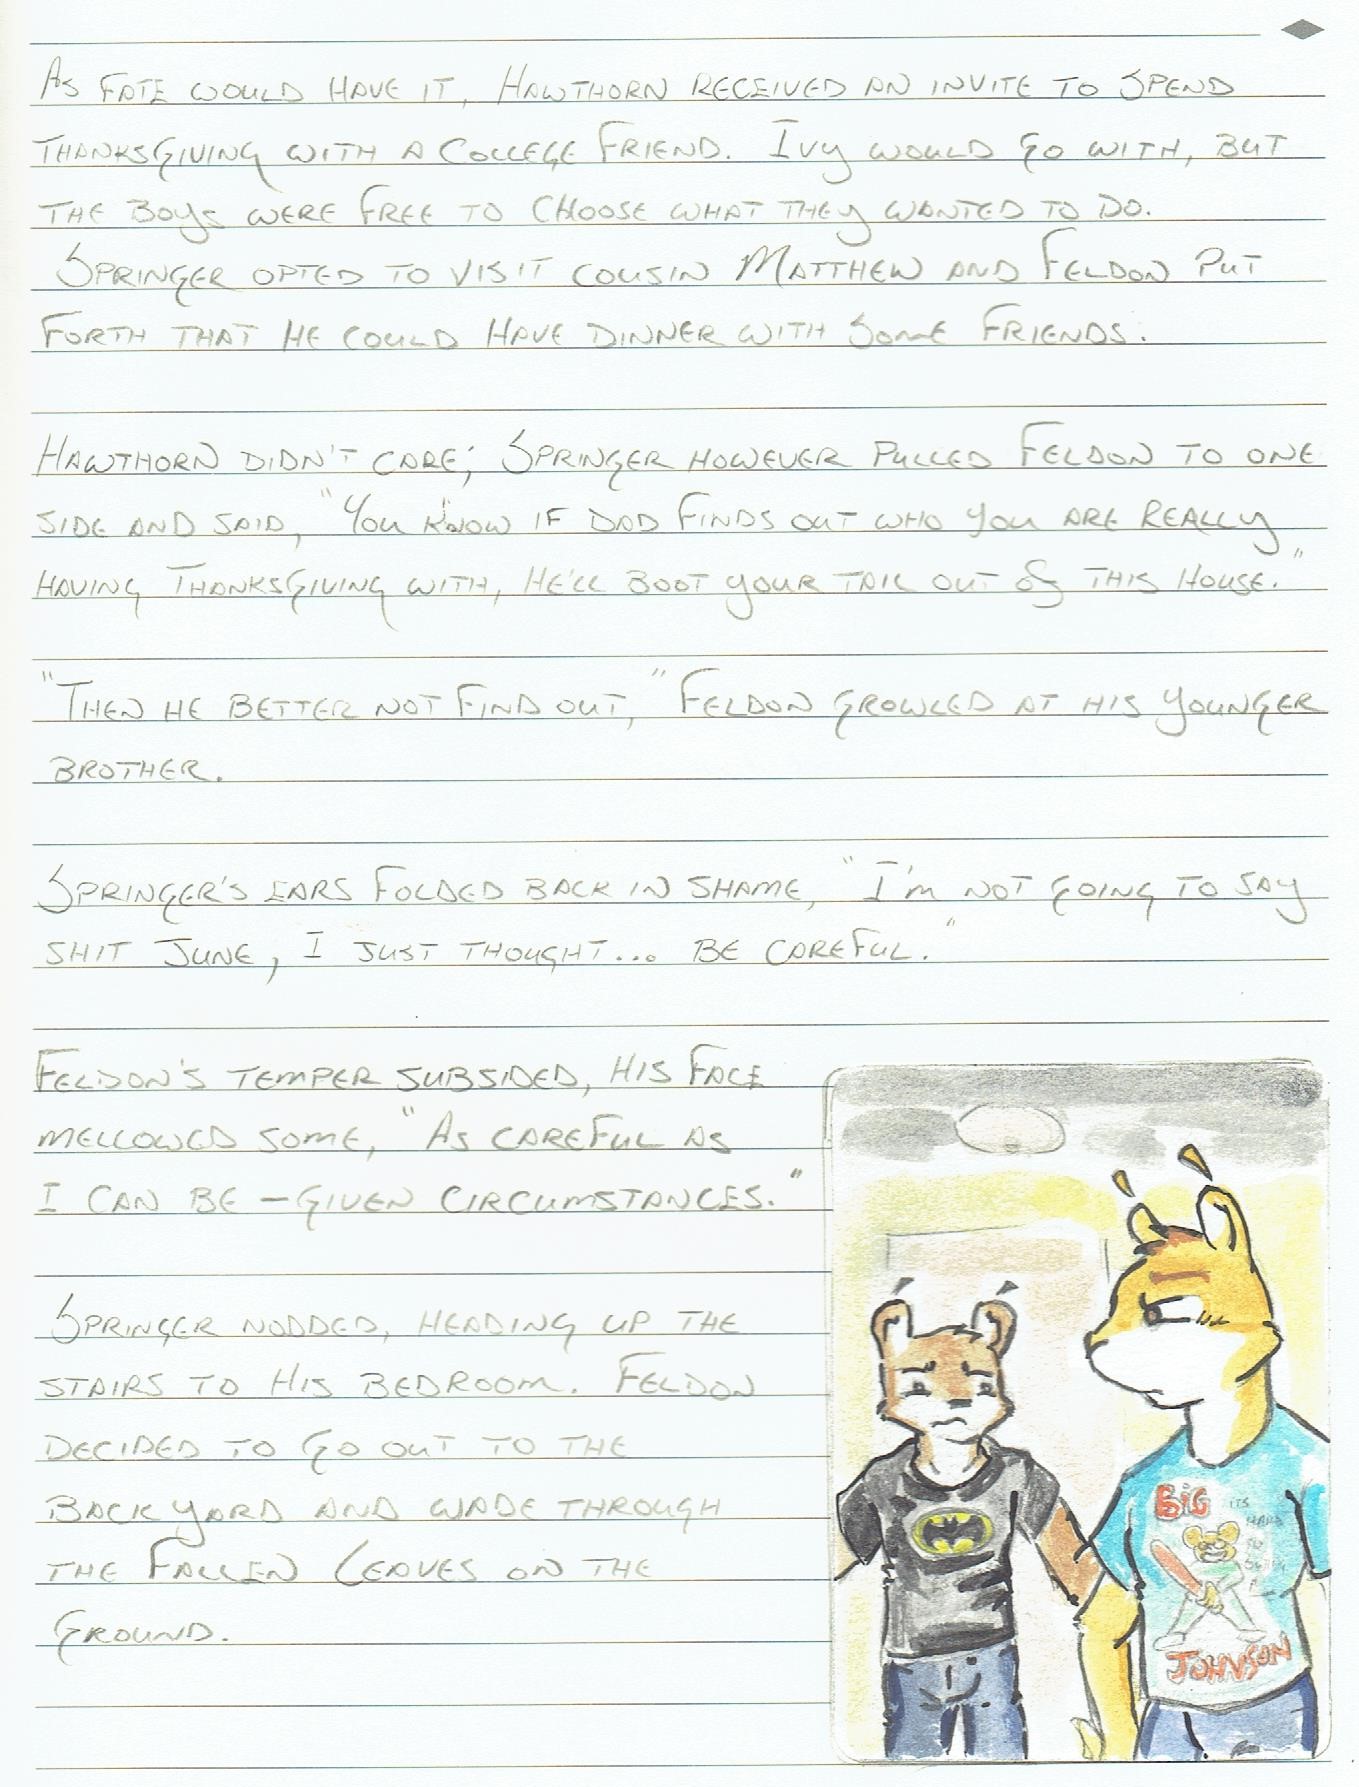 As fate would have it, Hawthorn received an invite to spend
Thanksgiving with a college friend. Ivy would go with, but
the boys were free to choose what they wanted to do.
Springer opted to visit cousin Matthew and Feldon put
forth that he could have dinner with some friends.
Hawthorn didn't care; Springer however pulled Feldon to one
side and said, "You know if Dad finds out who you are really
having Thanksgiving with, he'll boot your tail out of this house."
"Then he better not find out," Feldon growled at his younger
brother.
Springer's ears folded back in shame, "I'm not going to say
shit June, I just thought... be careful."
Feldon's temper subsided, his face
mellowed some, "As careful as
I can be – given circumstances."
Springer nodded, heading up the
stairs to his bedroom. Feldon
decided to go out to the
back yard and wade through
the fallen leaves on the
ground.
BIG
ITS
HARD
JOHNSON